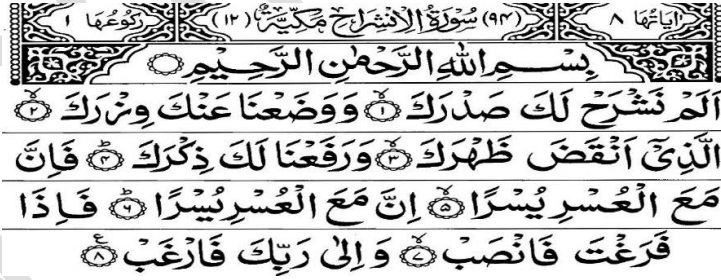 اٰيَاتُهَا ٨ (٩٤) سُوْرَةُ الْاِنْشِرَاحِ مَكِّيَّةٌ (١٢) رُكُوْعُهَا ١
بِسْمِ اللّٰهِ الرَّحْمٰنِ الرَّحِيْمِ
اَلَمْ نَشْرَحْ لَكَ صَدْرَكَ ۙ﴿١﴾ وَوَضَعْنَا عَنْكَ وِزْرَكَ ۙ﴿٢﴾
الَّذِىْٓ اَنْقَضَ ظَهْرَكَ ۙ﴿٣﴾ وَرَفَعْنَا لَكَ ذِكْرَكَ ؕ﴿٤﴾ فَاِنَّ
مَعَ الْعُسْرِ يُسْرًا ۙ﴿٥﴾ اِنَّ مَعَ الْعُسْرِ يُسْرًا ؕ﴿٦﴾ فَاِذَا
فَرَغْتَ فَانْصَبْ ۙ﴿٧﴾ وَ اِلٰى رَبِّكَ فَارْغَبْ ﴿٨﴾ ع